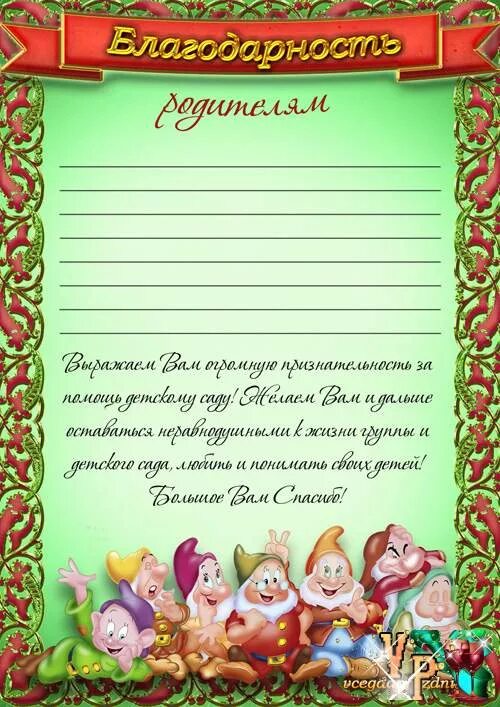 Благодарность
родителям
Выражаем Вам огромную признательность за
помощь детскому саду! Желаем Вам и дальше
оставаться неравнодушными к жизни группы и
детского сада, любить и понимать своих детей!
Большое Вам Спасибо!